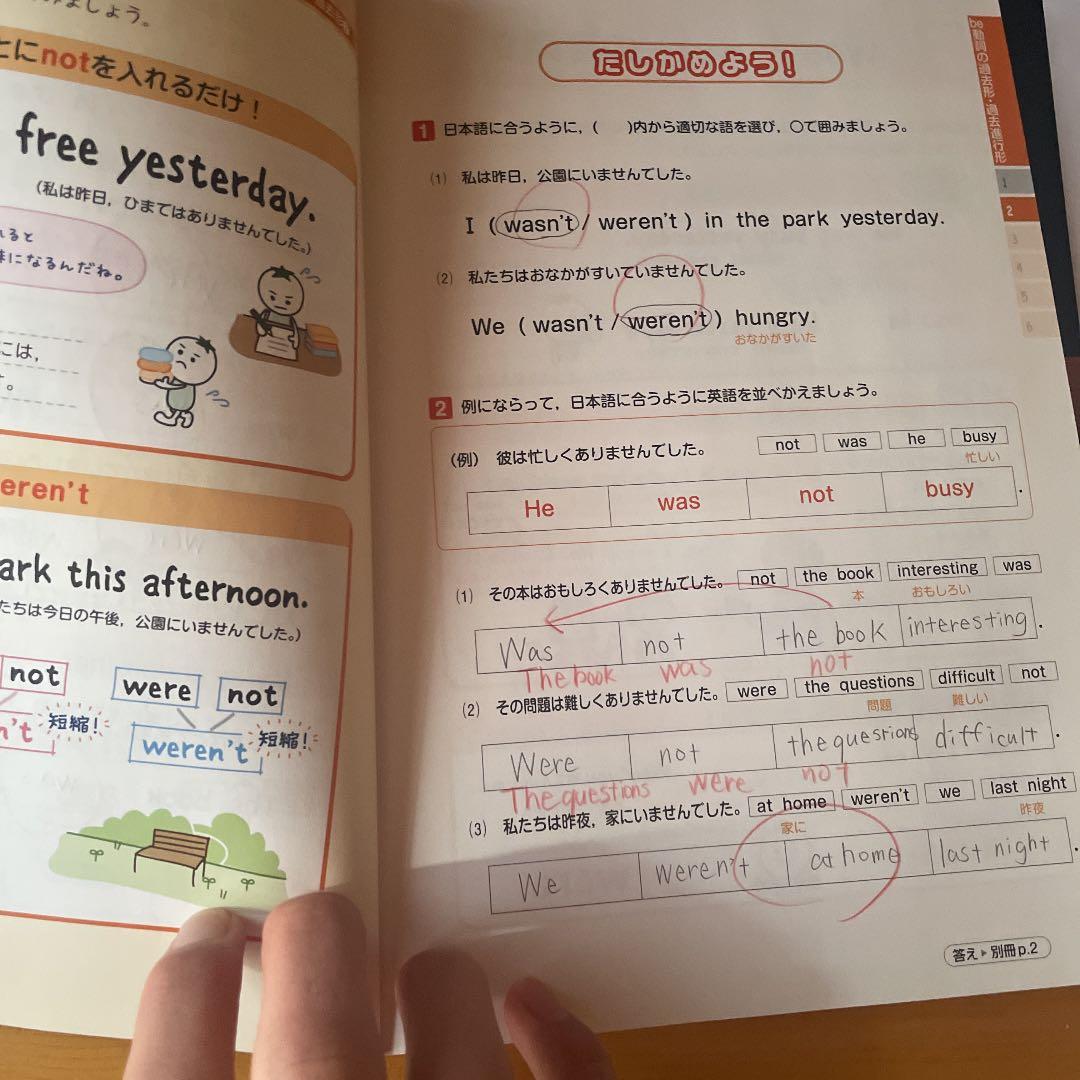 ましょう。
とにnotを入れるだけ！
free yesterday.
(私は昨日，ひまではありませんでした。)
れると
になるんだね。
には，
。
eren't
ark this afternoon.
たちは今日の午後，公園にいませんでした。)
not
were not
短縮！
n't
weren't 短縮！
be動詞の過去形・過去進行形
1
2
3
4
5
6
たしかめよう！
1 日本語に合うように，( )内から適切な語を選び，○で囲みましょう。
(1) 私は昨日，公園にいませんでした。
I ( wasn't / weren't ) in the park yesterday.
(2) 私たちはおなかがすいていませんでした。
We ( wasn't / weren't ) hungry.
おなかがすいた
2 例にならって，日本語に合うように英語を並べかえましょう。
(例) 彼は忙しくありませんでした。 not was he busy
忙しい
He was not busy .
(1) その本はおもしろくありませんでした。 not the book interesting was
本 おもしろい
Was not the book interesting .
The book was not
(2) その問題は難しくありませんでした。 were the questions difficult not
問題 難しい
Were not the questions difficult .
The questions were not
(3) 私たちは昨夜，家にいませんでした。 at home weren't we last night
家に 昨夜
We weren't at home last night .
答え▶別冊p.2